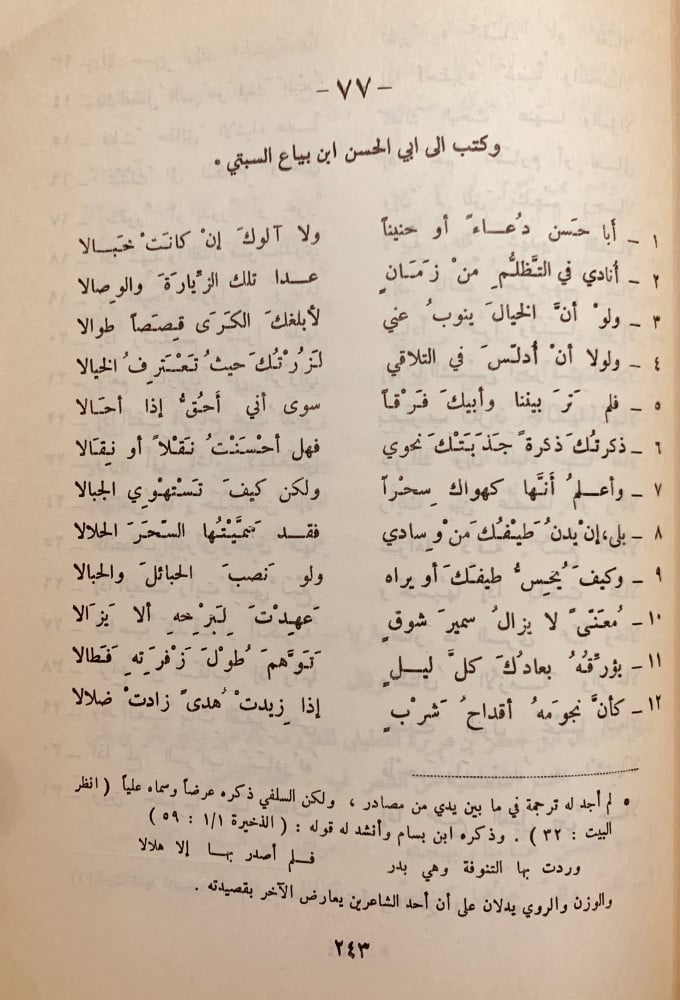 - ٧٧ -
وكتب الى ابي الحسن ابن بياع السبتي *
١ – أبا حسَن دُعاءً أو حنيناً ولا آلوكَ إنْ كانَتْ خَبالا
٢ – أنادي في التَّظلُّمِ منْ زَمَانٍ عدا تلك الزِّيارَةَ والوِصالا
٣ – ولوْ أنَّ الخيالَ ينوبُ عني لأبلغكَ الكَرَى قِصَصاً طوالا
٤ – ولولا أنْ أُدلّسَ في التلاقي لَزُرْتُكَ حيثُ تَعْتَرِفُ الخيالا
٥ – فلم تَرَ بيننا وأبيكَ فَرْقاً سوى أني أَحُقُّ إذا أحَالا
٦ – ذكرتُكَ ذكرةً جذَبَتْكَ نحوي فهل أحْسَنْتُ نَقْلاً أو نِقَالا
٧ – وأعلمُ أنَّها كهواك سِحْراً ولكن كيفَ تَسْتهْوِي الجبالا
٨ – بلى، إن يْدنُ طَيفُكَ منْ وِسادي فقد سَمَّيْتُها السّحَرَ الحلالا
٩ – وكيفَ يُحِسُّ طيفَكَ أو يراه ولو نَصبَ الحبائلَ والحبالا
١٠– مُعَنّىً لا يزالُ سميرَ شوقٍ عَهِدْتَ لِبَرْحِهِ ألا يَزالا
١١ – يؤرّقُهُ بعادُكَ كلَّ ليلٍ تَوَهَّمَ طُولَ زَفْرَتِهِ فَطالا
١٢ – كأنَّ نجومَهُ أقداحُ شَرْبٍ إذا زِيدتْ هُدىً زادتْ ضلالا
* لم أجد له ترجمة في ما بين يدي من مصادر ، ولكن السلفي ذكره عرضاً وسماه علياً ( انظر
البيت : ٣٢ ) . وذكره ابن بسام وأنشد له قوله : ( الذخيرة ١/١ : ٥٩ )
وردت بها التنوفة وهي بدر فلم أصدر بها إلا هلالا
والوزن والروي يدلان على أن أحد الشاعرين يعارض الآخر بقصيدته .
٢٤٣